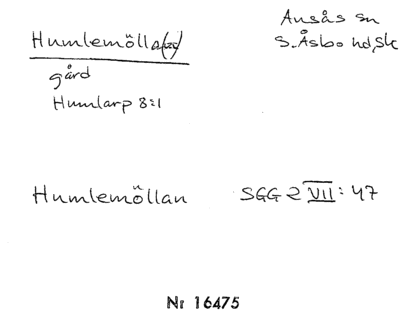 Humlemölla(n)
Ausås sn
S. Åsbo hd, Sk
gård
Humlarp 8:1
Humlemöllan SGG 2 VII: 47
Nr 16475